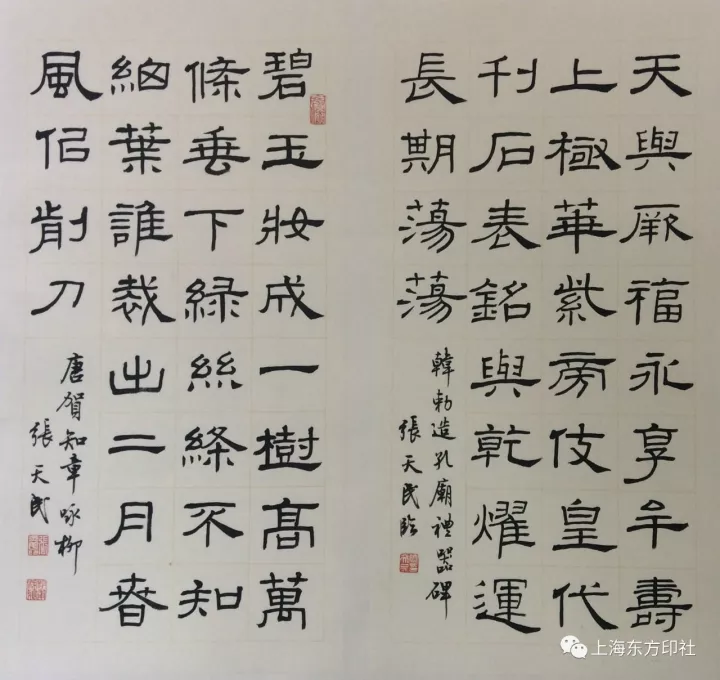 天與厥福永享牟壽
上極華紫旁伎皇代
刊石表銘與乾燿運
長期蕩蕩
韓勅造孔廟禮器碑
張天民臨
碧玉妝成一樹高萬
條垂下緑絲絛不知
細葉誰裁出二月春
風佀前刀
唐賀知章咏柳
張天民
上海东方印社